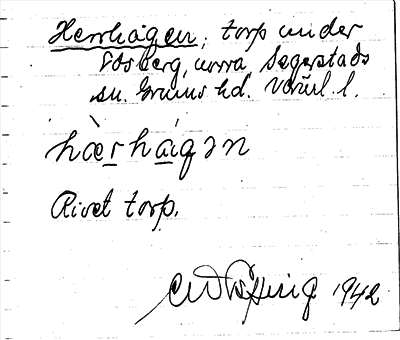 Herrhagen, torp under
Edsberg, norra Segerstads
sn. Grums hd. Värml. l.
hæ̀rhágən
Rivet torp.
1942